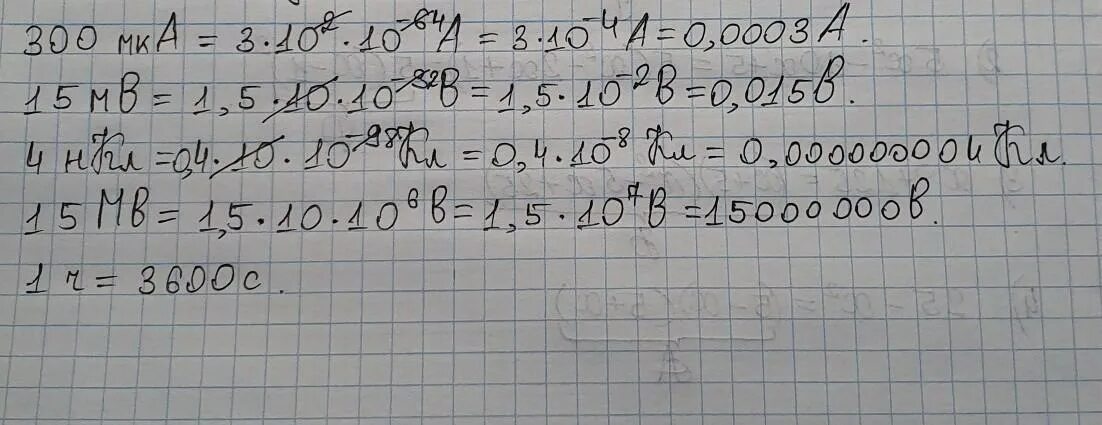 300 мкА = 3·10²·10⁻⁶⁴А = 3·10⁻⁴А = 0,0003А.
15 мВ = 1,5·10·10⁻³²В = 1,5·10⁻²В = 0,015В.
4 нКл = 0,4·10·10⁻⁹⁸Кл = 0,4·10⁻⁸ Кл = 0,000000004 Кл.
15 МВ = 1,5·10·10⁶В = 1,5·10⁷В = 15000000В.
1 ч = 3600с.